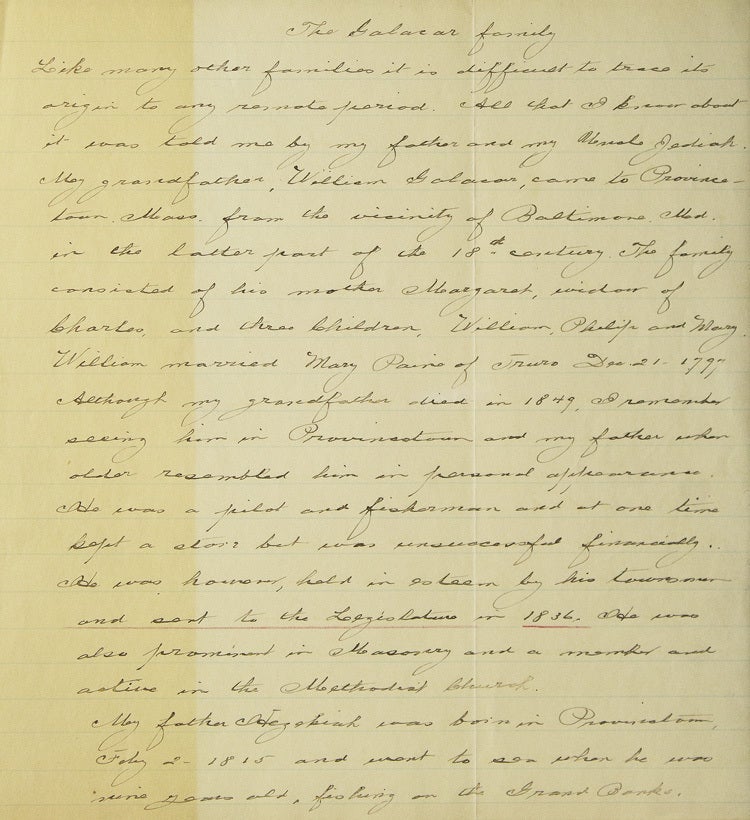 The Galacar family
Like many other families it is difficult to trace its
origin to any remote period. All that I know about
it was told me by my father and my Uncle Jediah.
My grandfather, William Galacar, came to Province-
town. Mass. from the vicinity of Baltimore. Md.
in the latter part of the 18th century. The family
consisted of his mother Margaret, widow of
Charles, and three Children, William, Philip and Mary.
William married Mary Paine of Truro Dec 21- 1797
Although my grandfather died in 1849, I remember
seeing him in Provincetown and my father when
older resembled him in personal appearance.
He was a pilot and fisherman and at one time
kept a store but was unsuccessful financially.
He was however, held in esteem by his townsmen
and sent to the Legislature in 1836. He was
also prominent in Masonry and a member and
active in the Methodist Church.
My father Hezekiah was born in Provincetown,
Feby 2- 1815 and went to sea when he was
nine years old, fishing on the Grand Banks.